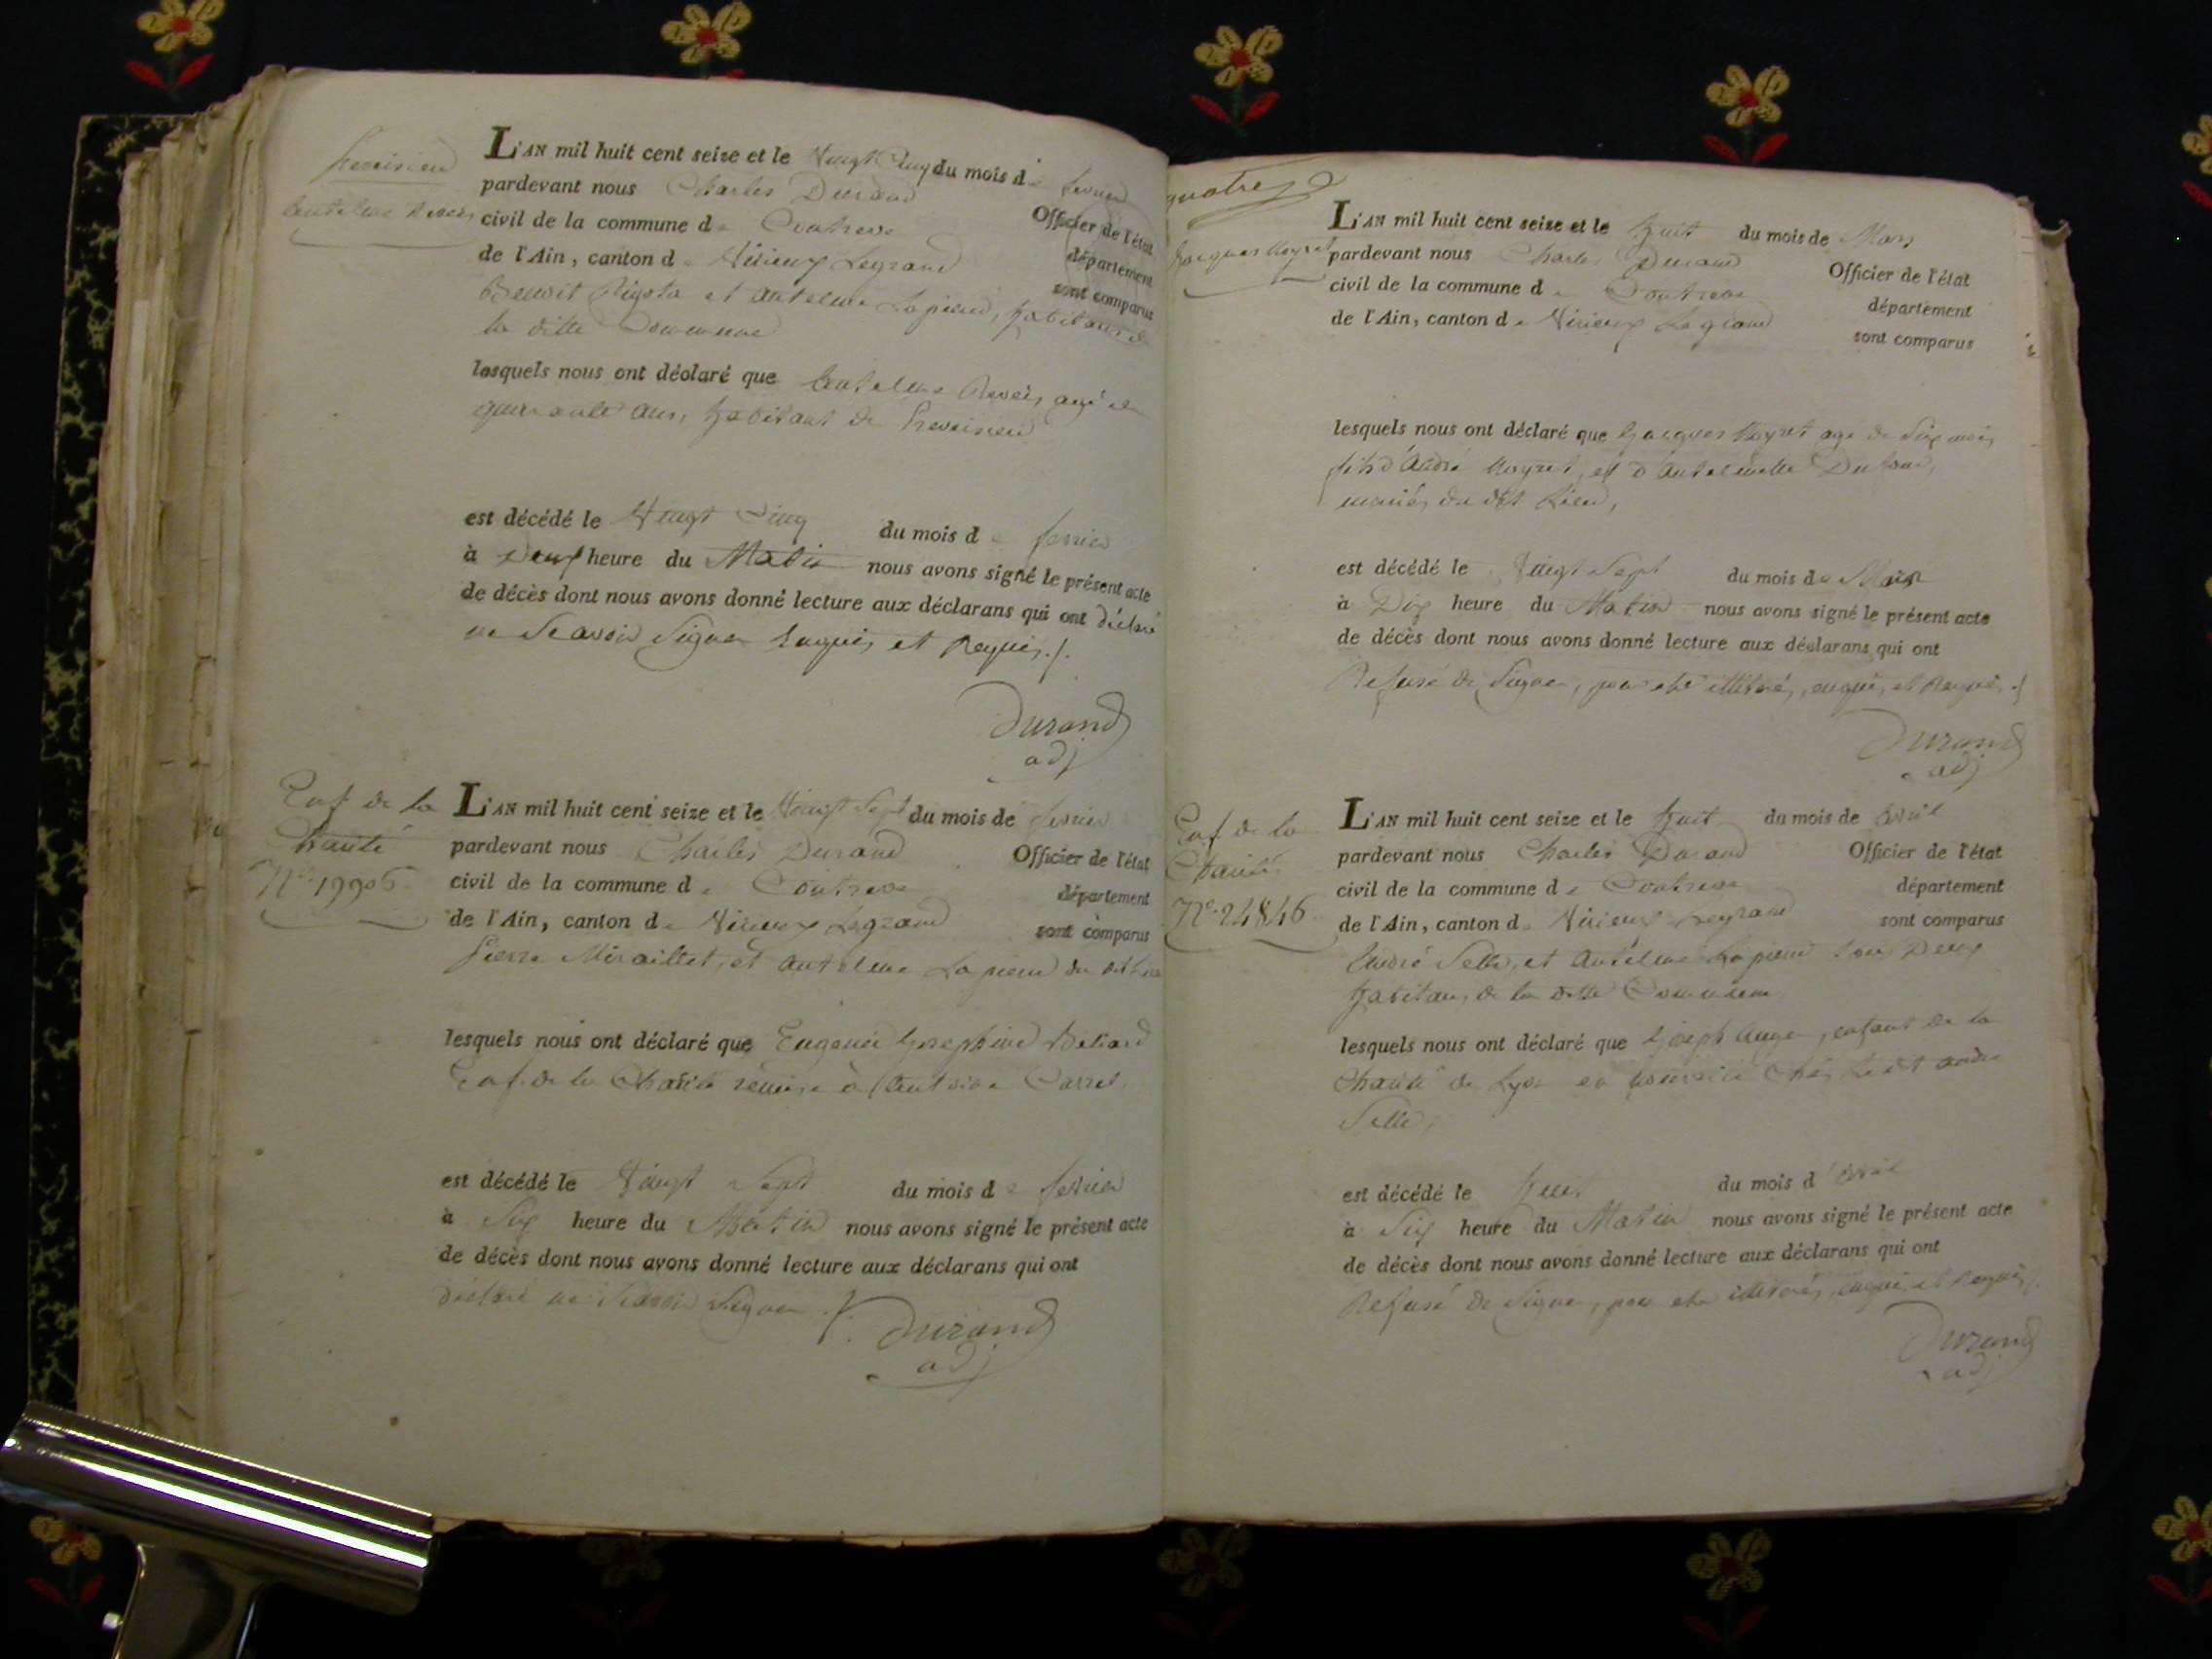 Anthelme Reveis
L'AN mil huit cent seize et le Vingt Cinq du mois de fevrier
pardevant nous Charles Durand Officier de l'état
civil de la commune de Contrevoz département
de l'Ain, canton de Virieux Legrand sont comparus
Benoit et Antelme Lapierre, habitans de
la ditte Commune
lesquels nous ont déclaré que Antelme Reveis, agé de
quarante ans, habitant de
est décédé le Vingt Cinq du mois de fevrier
à Neuf heure du Matin nous avons signé le présent acte
de décès dont nous avons donné lecture aux déclarans qui ont déclaré
ne Scavoir Signer Enquis et Requis ./.
Durand
adj
Enf de la
Charité
N° 19906
L'AN mil huit cent seize et le Vingt Sept du mois de fevrier
pardevant nous Charles Durand Officier de l'état
civil de la commune de Contrevoz département
de l'Ain, canton de Virieux Legrand sont comparus
Pierre Miraillet, et Antelme Lapierre du dit lieu
lesquels nous ont déclaré que Eugenie Josephine
Enf. de la Charité remise à Antoine Carrel,
est décédé le Vingt Sept du mois de fevrier
à Six heure du Matin nous avons signé le présent acte
de décès dont nous avons donné lecture aux déclarans qui ont
déclaré ne Scavoir Signer ./.
Durand
adj
quatre
Jacques Moyret
L'AN mil huit cent seize et le huit du mois de Mars
pardevant nous Charles Durand Officier de l'état
civil de la commune de Contrevoz département
de l'Ain, canton de Virieux Legrand sont comparus
lesquels nous ont déclaré que Jacques Moyret agé de Six mois,
fils d'André Moyret, et d'Antelmette Dufour,
mariés du dit lieu,
est décédé le Vingt Sept du mois de Mars
à Dix heure du Matin nous avons signé le présent acte
de décès dont nous avons donné lecture aux déclarans qui ont
Refusé de Signer, pour etre illitéré, enquis, et Requis ./.
Durand
adj
Enf de la
Charité
N° 24846
L'AN mil huit cent seize et le huit du mois de Avril
pardevant nous Charles Durand Officier de l'état
civil de la commune de Contrevoz département
de l'Ain, canton de Virieux Legrand sont comparus
André Selle, et Antelme Lapierre tous Deux
habitans, de la ditte Commune
lesquels nous ont déclaré que Joseph Ange, enfant de la
Charité de Lyon en nourrice chés le dit andré
Selle,
est décédé le huit du mois d'avril
à Six heure du Matin nous avons signé le présent acte
de décès dont nous avons donné lecture aux déclarans qui ont
Refusé de Signer, pour etre illitéré, enquis, et Requis ./.
Durand
adj